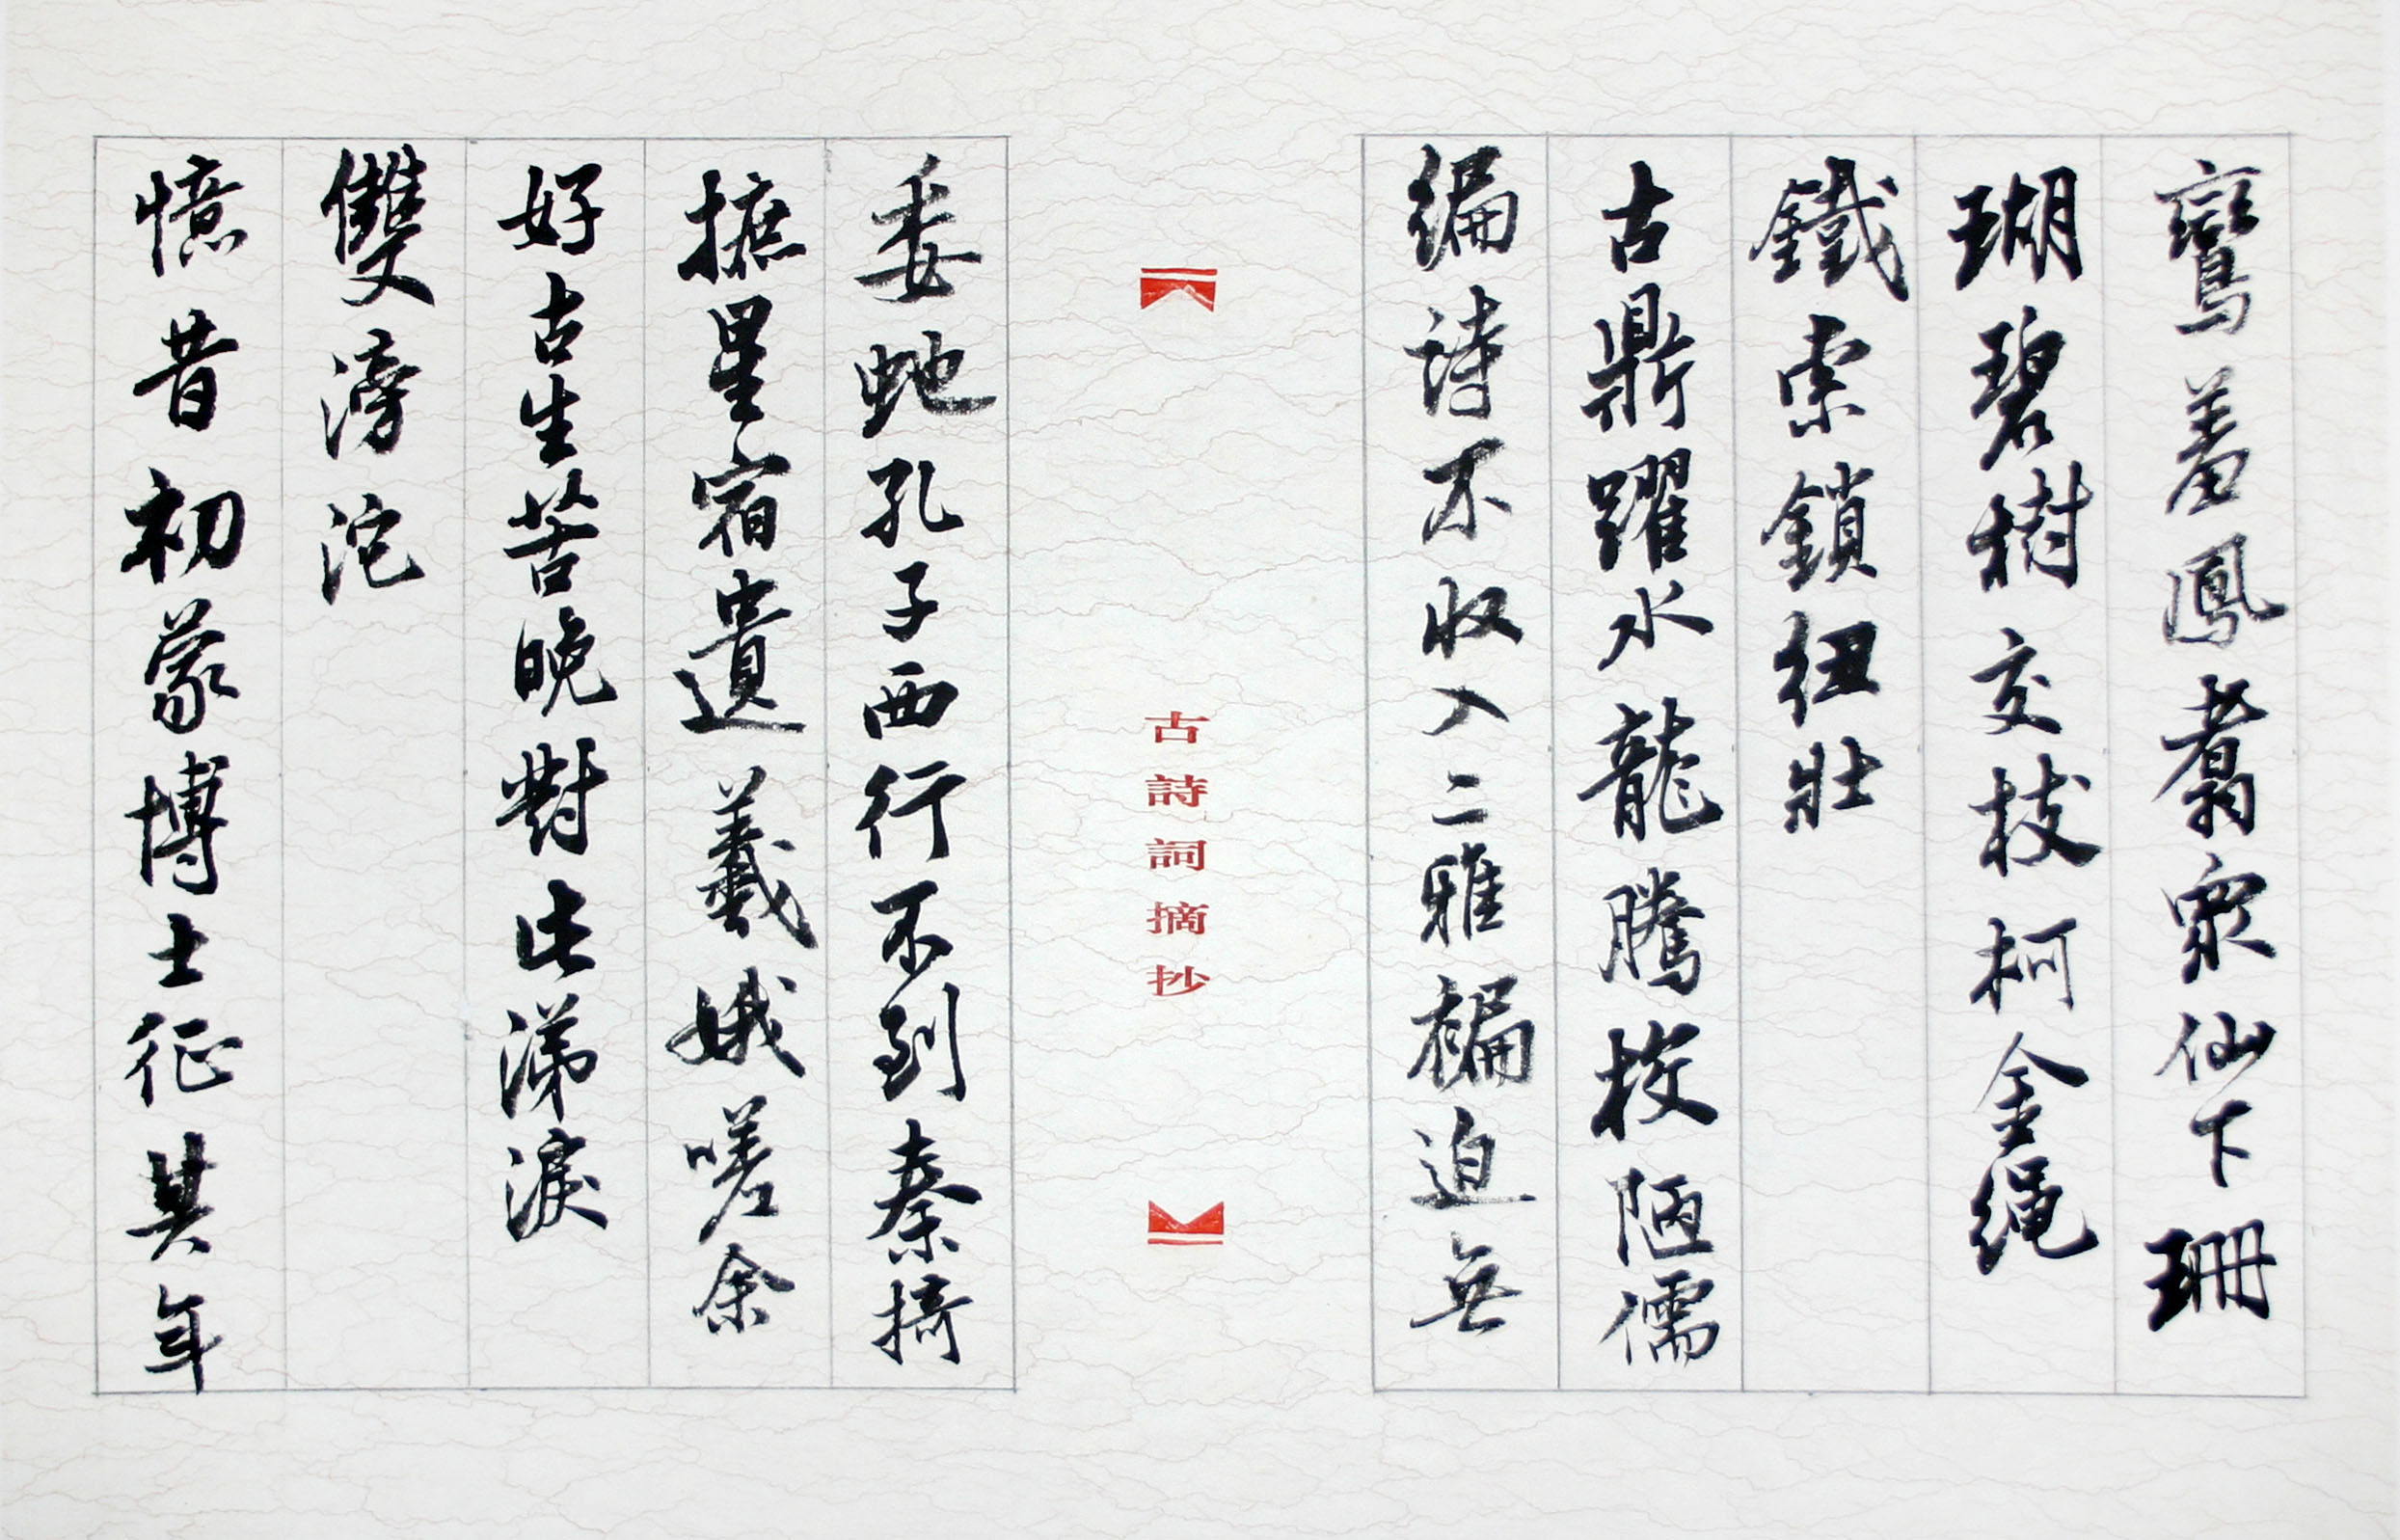 鸞翔鳳翥眾仙下珊
瑚碧樹交枝柯金繩
鐵索鎖紐壯
古鼎躍水龍騰梭陋儒
編詩不收入二雅褊迫無
古詩詞摘抄
委蛇孔子西行不到秦掎
摭星宿遺羲娥嗟余
好古生苦晚對此涕淚
雙滂沱
憶昔初蒙博士征其年